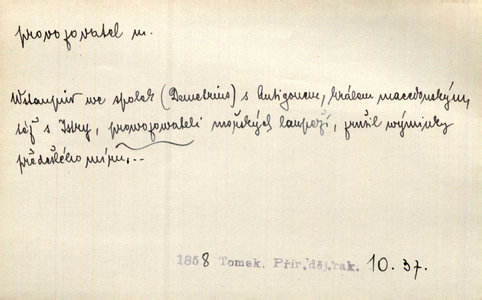 provozovatel m.
Wstoupiv we spolek (Demetrius) s Antigonem, králem macedonským,
též s Istry, provozovateli mořských loupeží, zrušil wýminky
předešlého míru,..
1858 Tomek. Přír.děj.rak. 10.37.